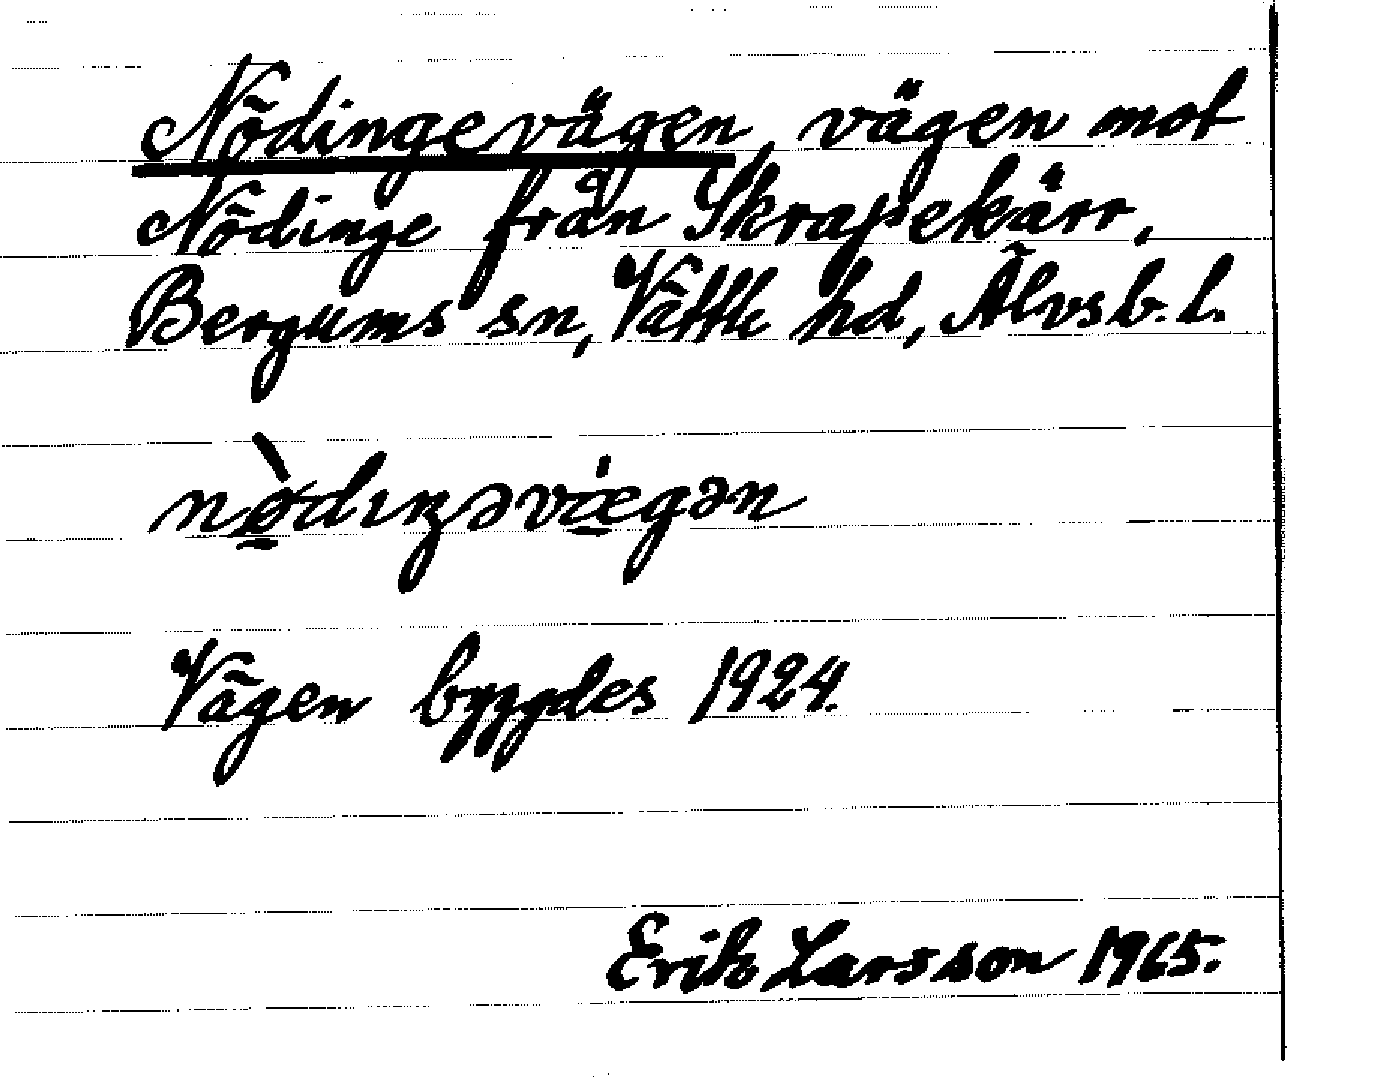 Nödingevägen, vägen mot
Nödinge från Skrapekärr,
Bergums sn, Vättle hd, Älvsb. l.
nø̀dıŋəvæ̇gən
Vägen byggdes 1924.
Erik Larsson 1965.